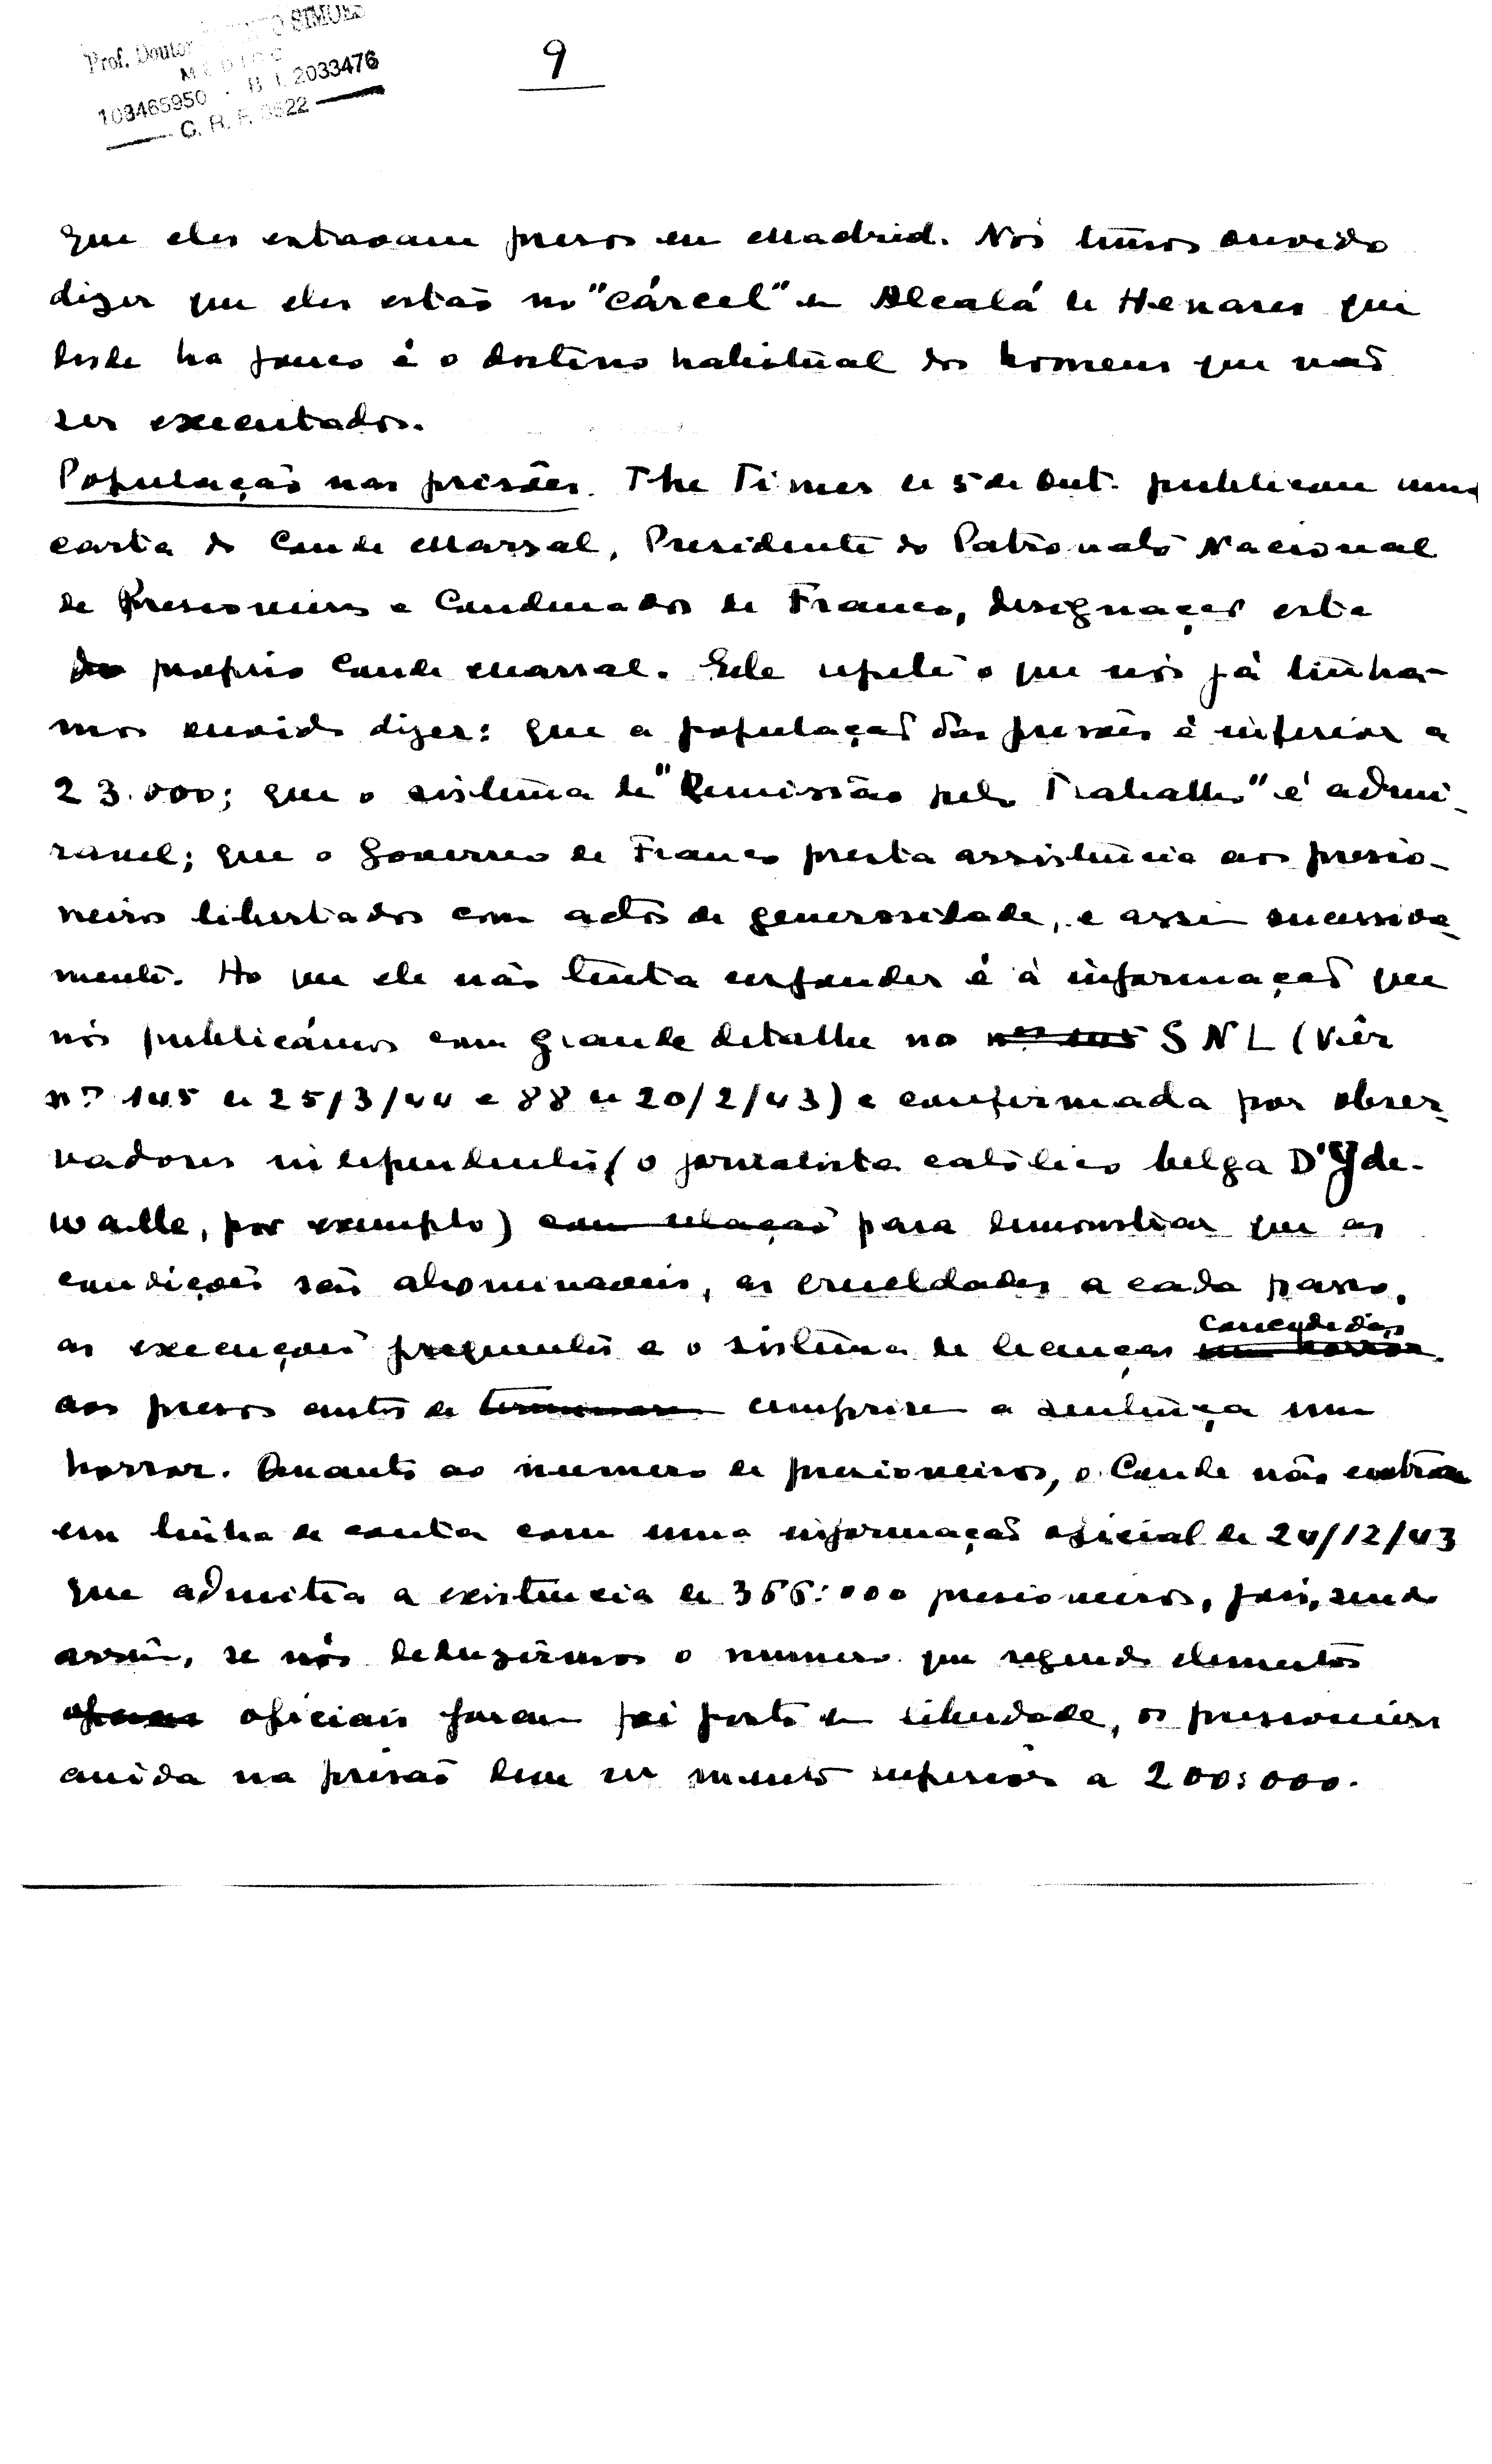 Prof. Doutor SIMÕES
108465950 · B. I. 2033476
9
que eles estavam presos em Madrid. Nós temos ouvido
dizer que eles estão no "cárcel" de Alcalá de Henares que
desde ha pouco é o destino habitual dos homens que vão
ser executados.
População nas prisões. The Times de 5 de Out. publicou uma
carta do Conde Marsal, Presidente do Patronato Nacional
de Presioneiros e Condenados de Franco, designação esta
do proprio Conde Marsal. Ele repete o que nós já tinha-
mos ouvido dizer: que a população das prisões é inferior a
23.000; que o sistema de "Remissão pelo Trabalho" é admi-
ravel; que o Governo de Franco presta assistência aos presio-
neiros libertados com actos de generosidade, e assim sucessiva-
mente. Ao que ele não tenta responder é à informação que
nós publicámos com grande detalhe no nº 145 S N L (Vêr
nº 145 de 25/3/44 e 88 de 20/2/43) e confirmada por obser-
vadores independentes (o jornalista católico belga D'Yde-
walle, por exemplo) com relação para demonstrar que as
condições são abominaveis, as crueldades a cada passo,
as execuções frequentes e o sistema de licenças um horror concedidas
aos presos antes de terminarem cumprirem a sentença um
horror. Quanto ao numero de presioneiros, o Conde não entra
em linha de conta com uma informação oficial de 24/12/43
que admitia a existência de 366:000 presioneiros, pois, sendo
assim, se nós deduzirmos o numero que segundo elementos
oficiais foram foi posto em liberdade, os presioneiros
ainda na prisão deve ser muito superior a 200:000.